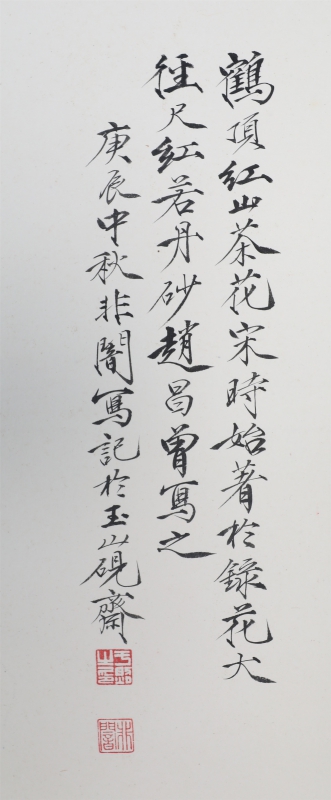 鶴頂紅山茶花宋時始著於録花大
徑尺紅若丹砂趙昌曽寫之
庚辰中秋非闇寫記於玉山硯齋
非闇